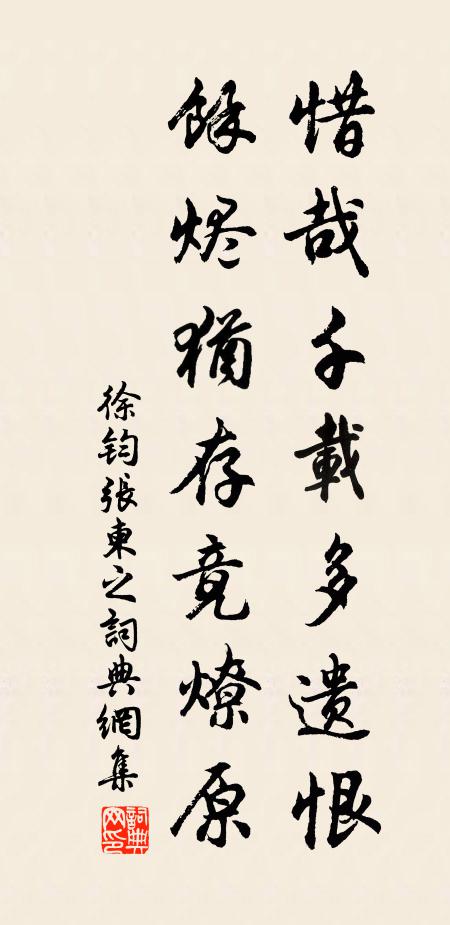 惜哉千載多遺恨
餘烬猶存竟燎原
徐鈞張柬之詞典網集
詞典
网印